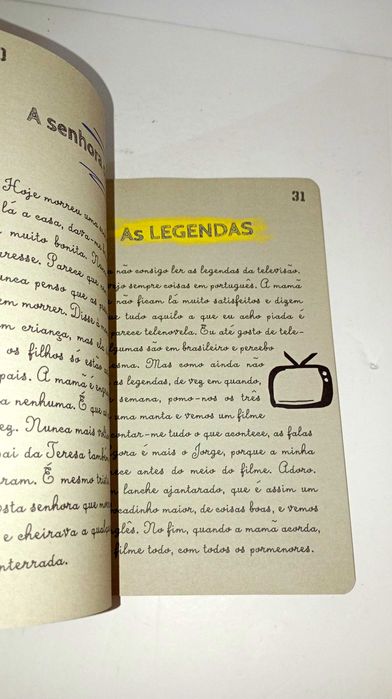 A senhora
Hoje morreu uma
lá a casa, dava-me
muito bonita.
Parece que
nunca penso que as
em morrer. Disse à
criança, mas ela
os filhos só estão
pais. A mamã é
nenhuma. É que
Nunca mais
pai da Teresa também
É mesmo
esta senhora que
e cheirava a
enterrada.
31
AS LEGENDAS
não consigo ler as legendas da televisão.
sempre coisas em português. A mamã
não ficam lá muito satisfeitos e dizem
tudo aquilo a que eu acho piada é
parece telenovela. Eu até gosto de tele-
algumas são em brasileiro e percebo
Mas como ainda não
as legendas, de vez em quando,
semana, pomo-nos os três
uma manta e vemos um filme
contar-me tudo o que acontece, as falas
agora é mais o Jorge, porque a minha
antes do meio do filme. Adoro.
lanche ajantarado, que é assim um
bocadinho maior, de coisas boas, e vemos
inglês. No fim, quando a mamã acorda,
filme todo, com todos os pormenores.